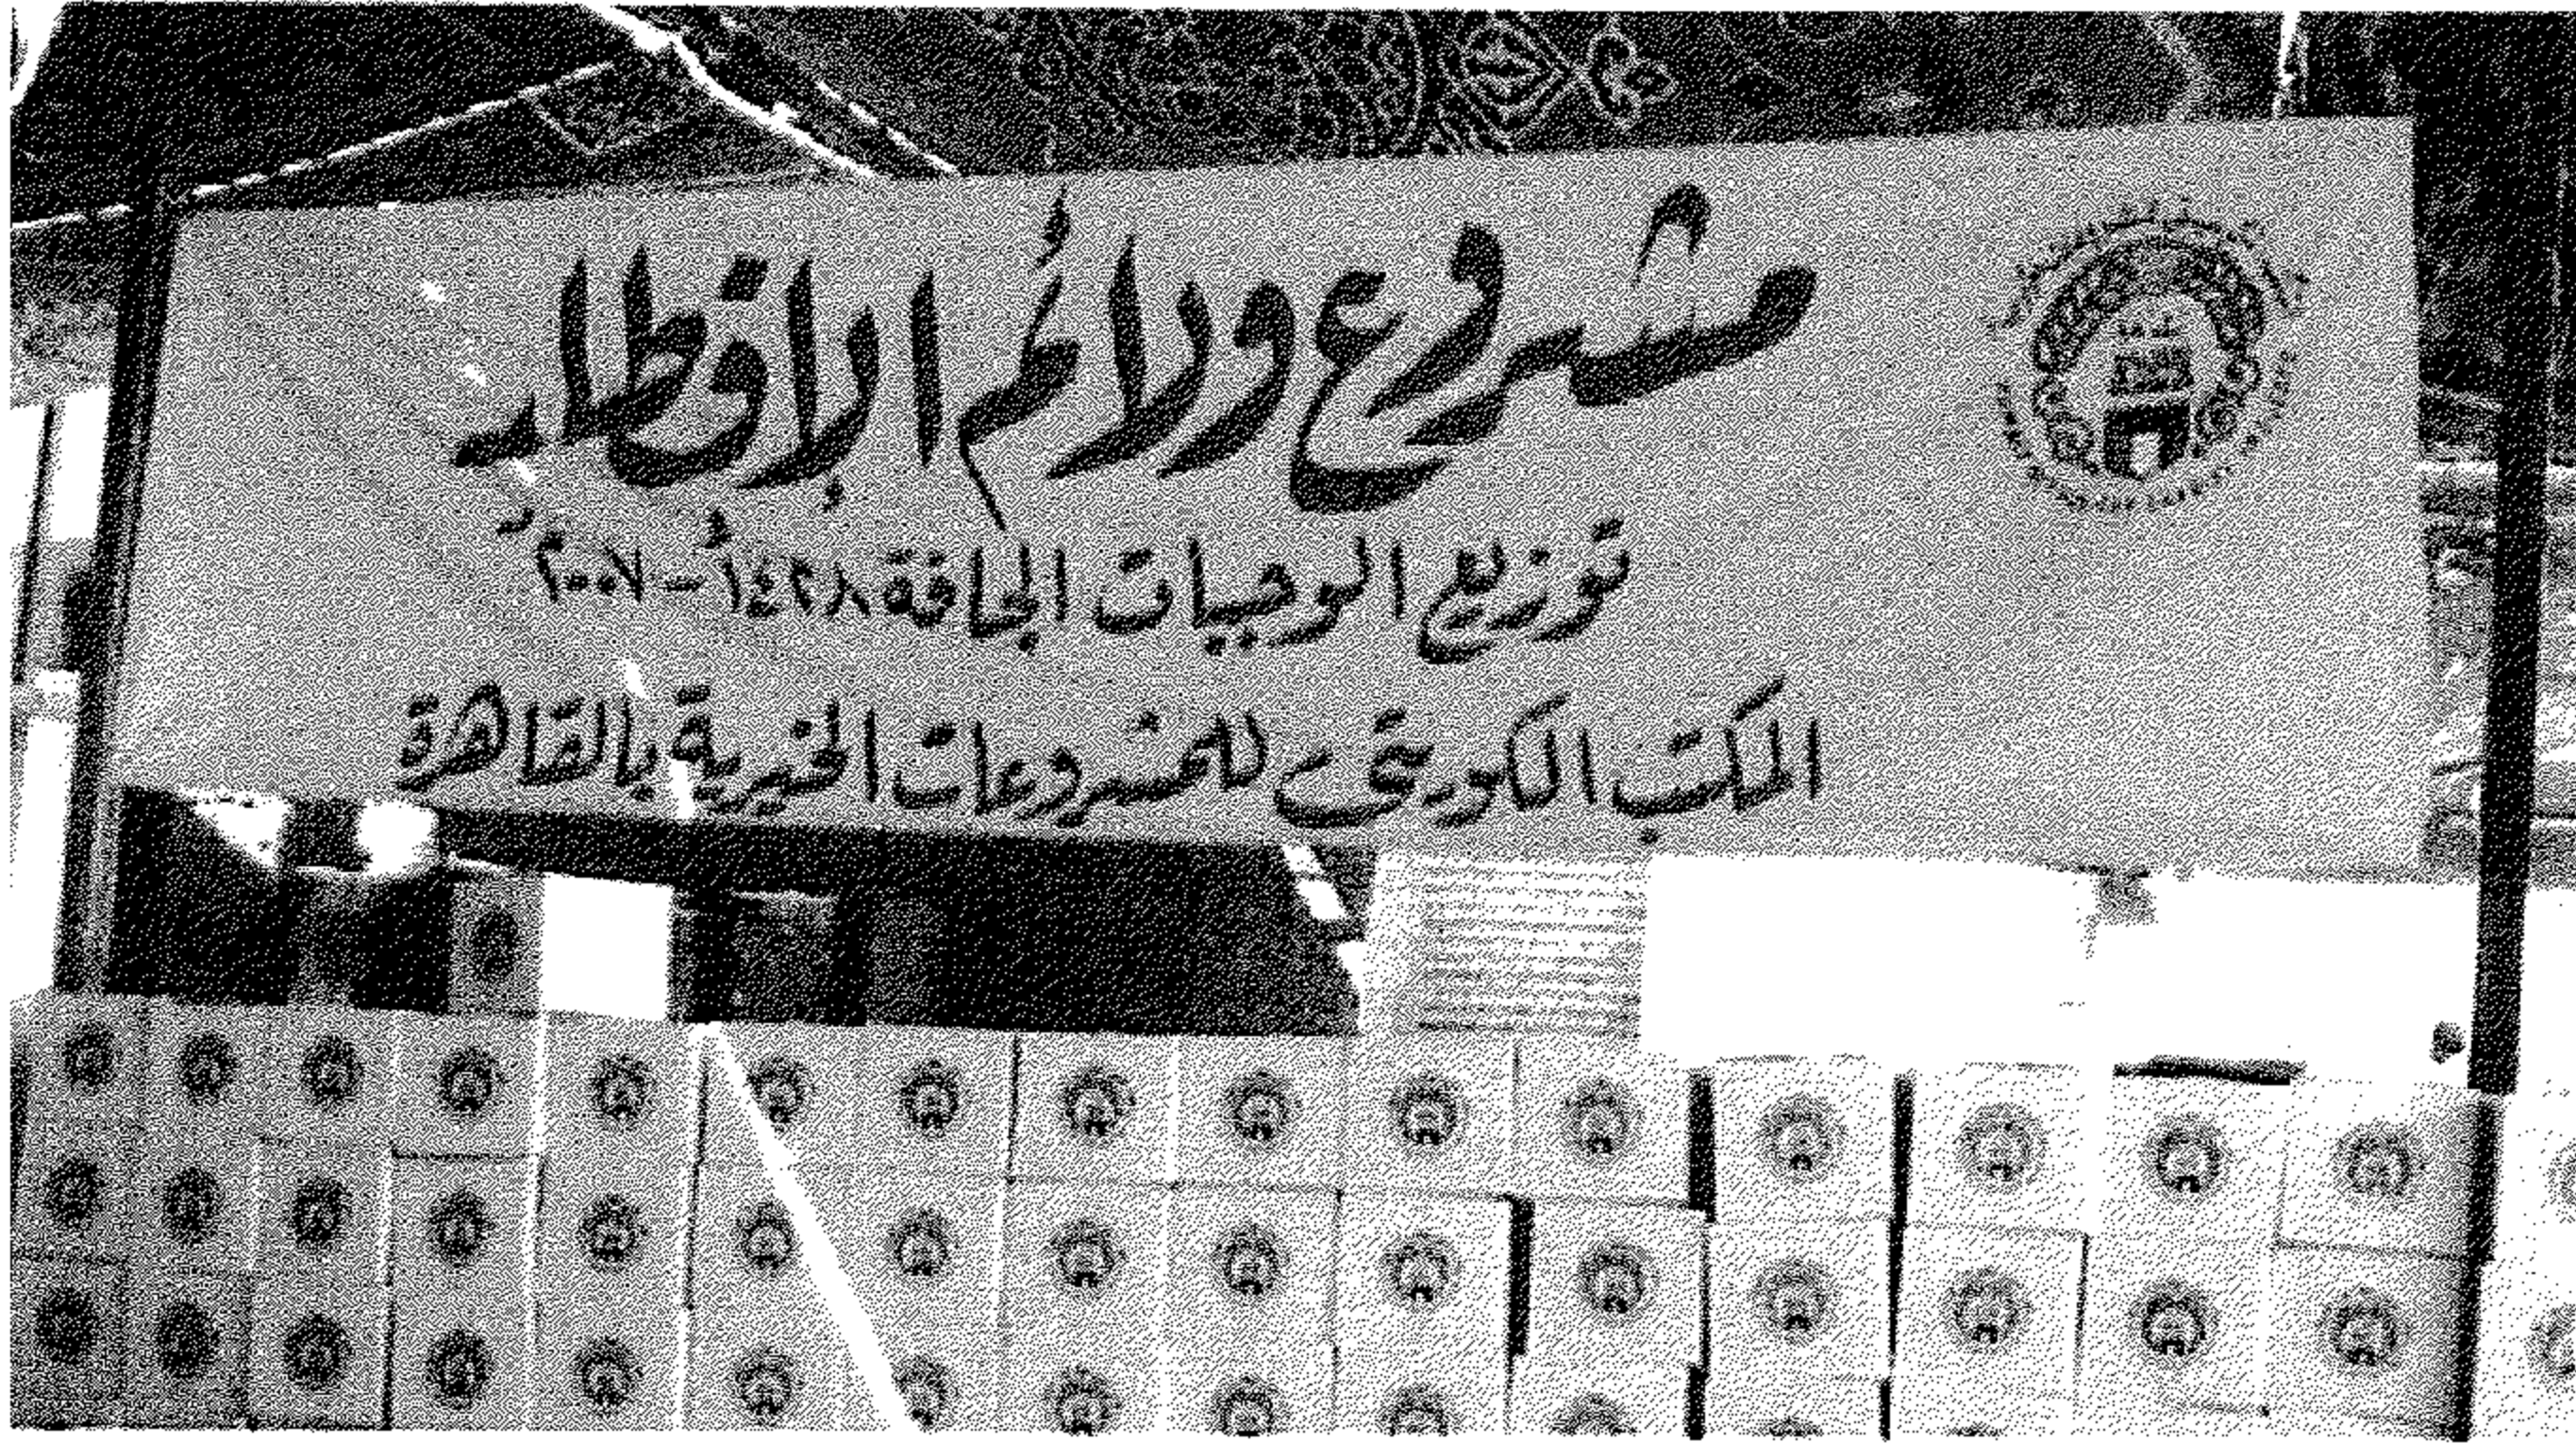 مشروع ولائم الإفطار
توزيع الوجبات الجافة ١٤٢٨هـ - ٢٠٠٧م
المكتب الكويتى للمشروعات الخيرية بالقاهرة